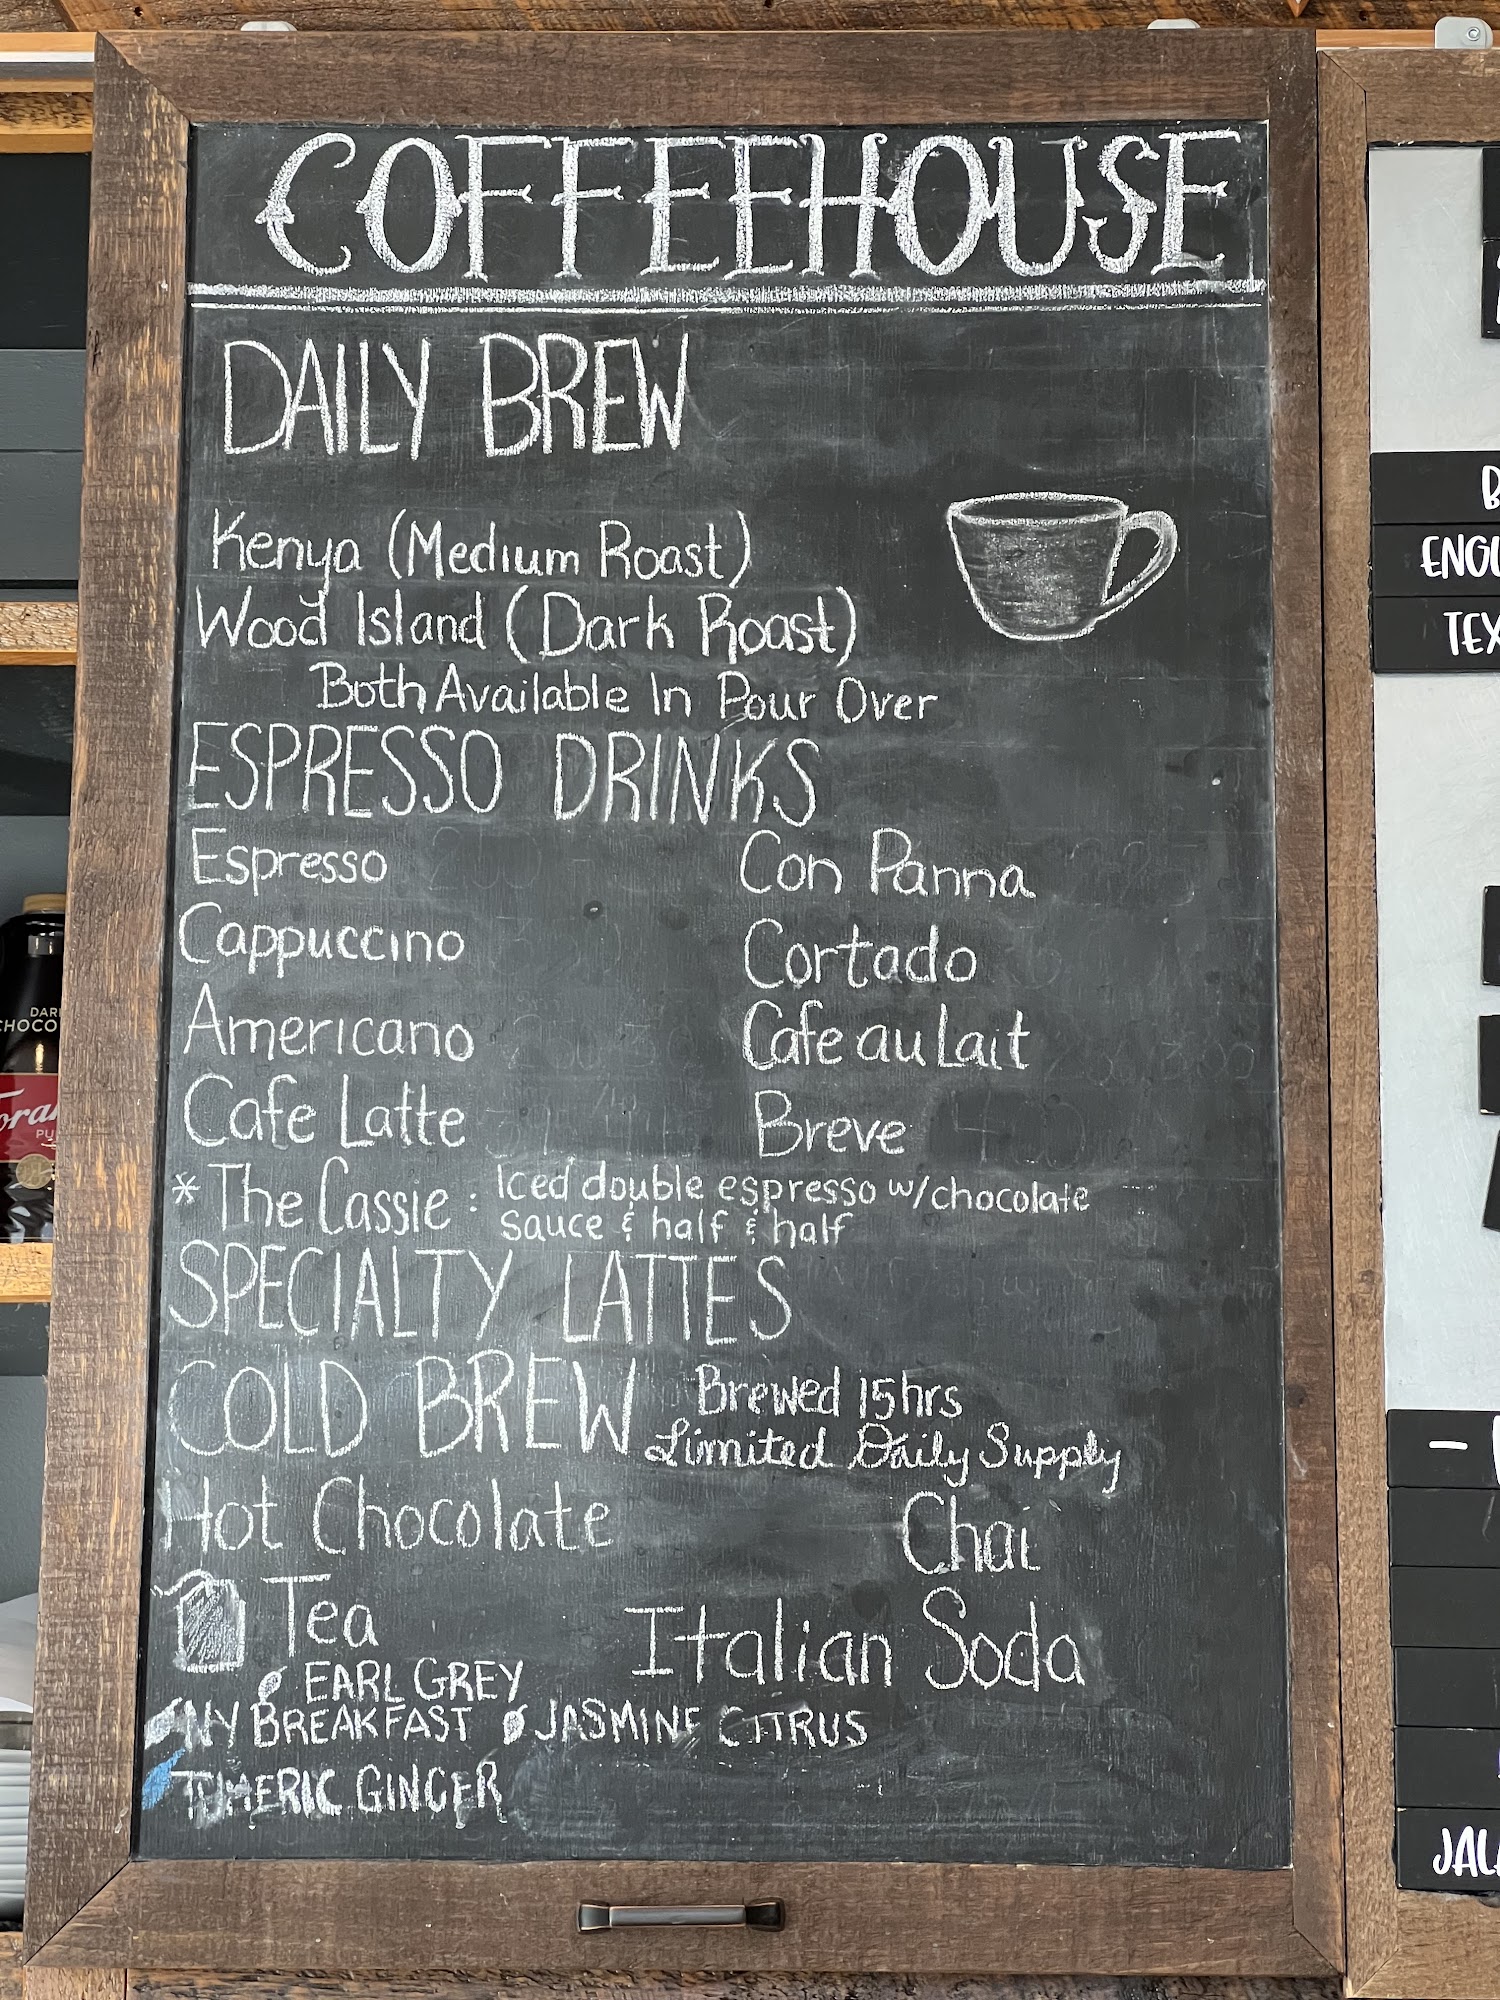 COFFEEHOUSE
DAILY BREW
Kenya (Medium Roast)
Wood Island (Dark Roast)
Both Available In Pour Over
ESPRESSO DRINKS
Espresso
Con Panna
Cappuccino
Cortado
Americano
Cafe au Lait
Cafe Latte
Breve
* The Cassie : Iced double espresso w/chocolate
sauce & half & half
SPECIALTY LATTES
COLD BREW
Brewed 15hrs
Limited Daily Supply
Hot Chocolate
Chai
Tea
Italian Soda
EARL GREY
NY BREAKFAST
JASMINE CITRUS
GINGER